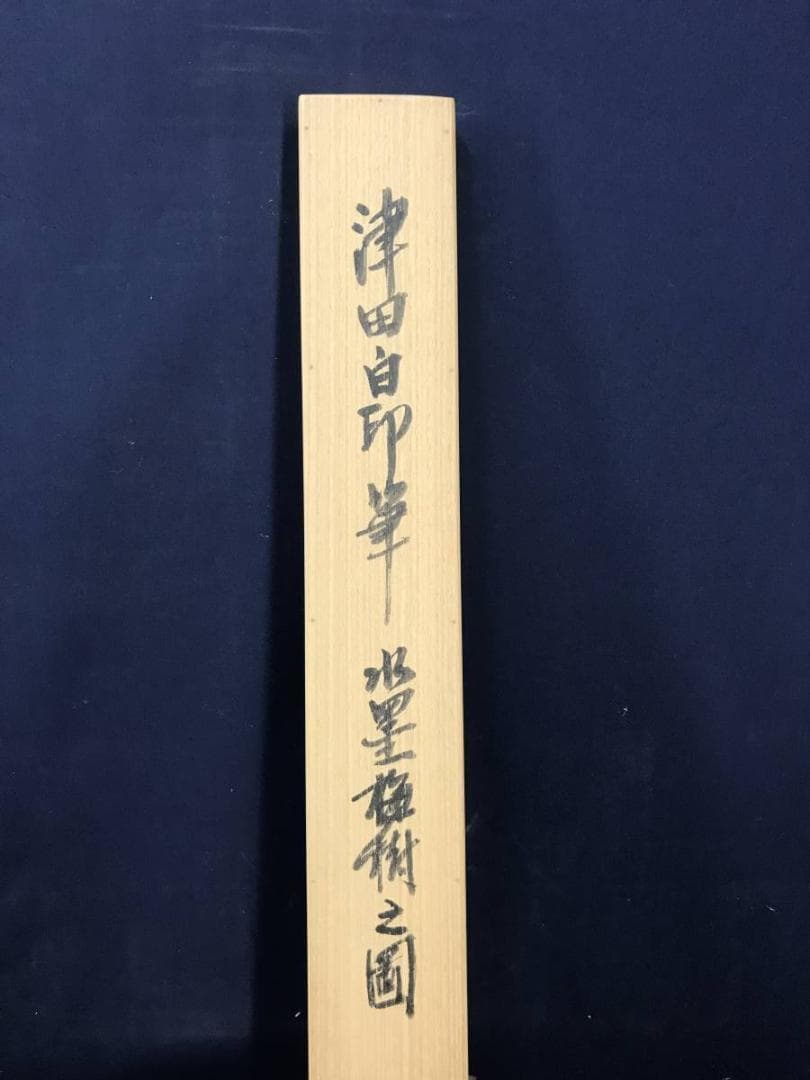 津田白印筆 水墨梅樹之圖